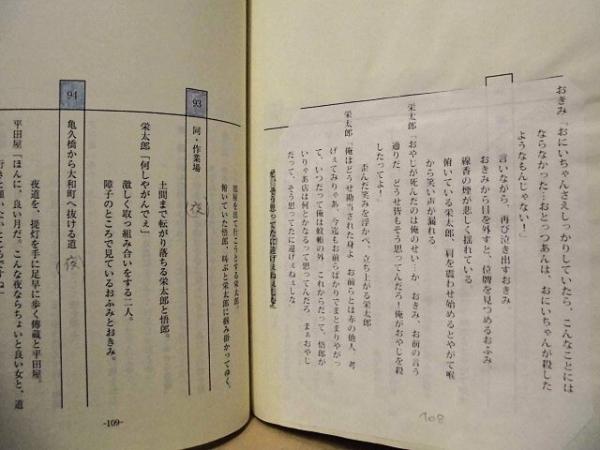 おきみ「おにいちゃんさえしっかりしていたら、こんなことには
ならなかった…おとっつあんは、おにいちゃんが殺した
ようなもんじゃない！」
言いながら、再び泣き出すおきみ
おきみから目を外すと、位牌を見つめるおふみ
線香の煙が悲しく揺れている
俯いている栄太郎、肩を震わせ始めるとやがて喉
から笑い声が漏れる
栄太郎「おやじが死んだのは俺のせいか、おきみ、お前の言う
通りだ、どうせ皆もそう思ってんだろ！俺がおやじを殺
したってよ！」
歪んだ笑みを浮かべ、立ち上がる栄太郎
栄太郎「俺はどうせ勘当された身よ、お前らとは赤の他人、考
げえてみりゃあ、今迄もお前らばかりでまとまりやがっ
て、いつだって俺は蚊帳の外、これからだって、悟郎が
いりゃあ店は何とかなるって思ってんだろ、まぁおやじ
だって、そう思ってたに違げぇねぇしな
108
部屋を出て行こうとする栄太郎、
俯いていた悟郎、叫ぶと栄太郎に掴み掛かってゆく。
93
同・作業場
(夜)
土間まで転がり落ちる栄太郎と悟郎。
栄太郎「何しやがんでぇ」
激しく取っ組み合いをする二人。
障子のところで見ているおふみとおきみ。
94
亀久橋から大和町へ抜ける道
(夜)
夜道を、提灯を手に足早に歩く傳蔵と平田屋。
平田屋「ほんに、良い月だ。こんな夜ならちょいと良い女と、道
-109-